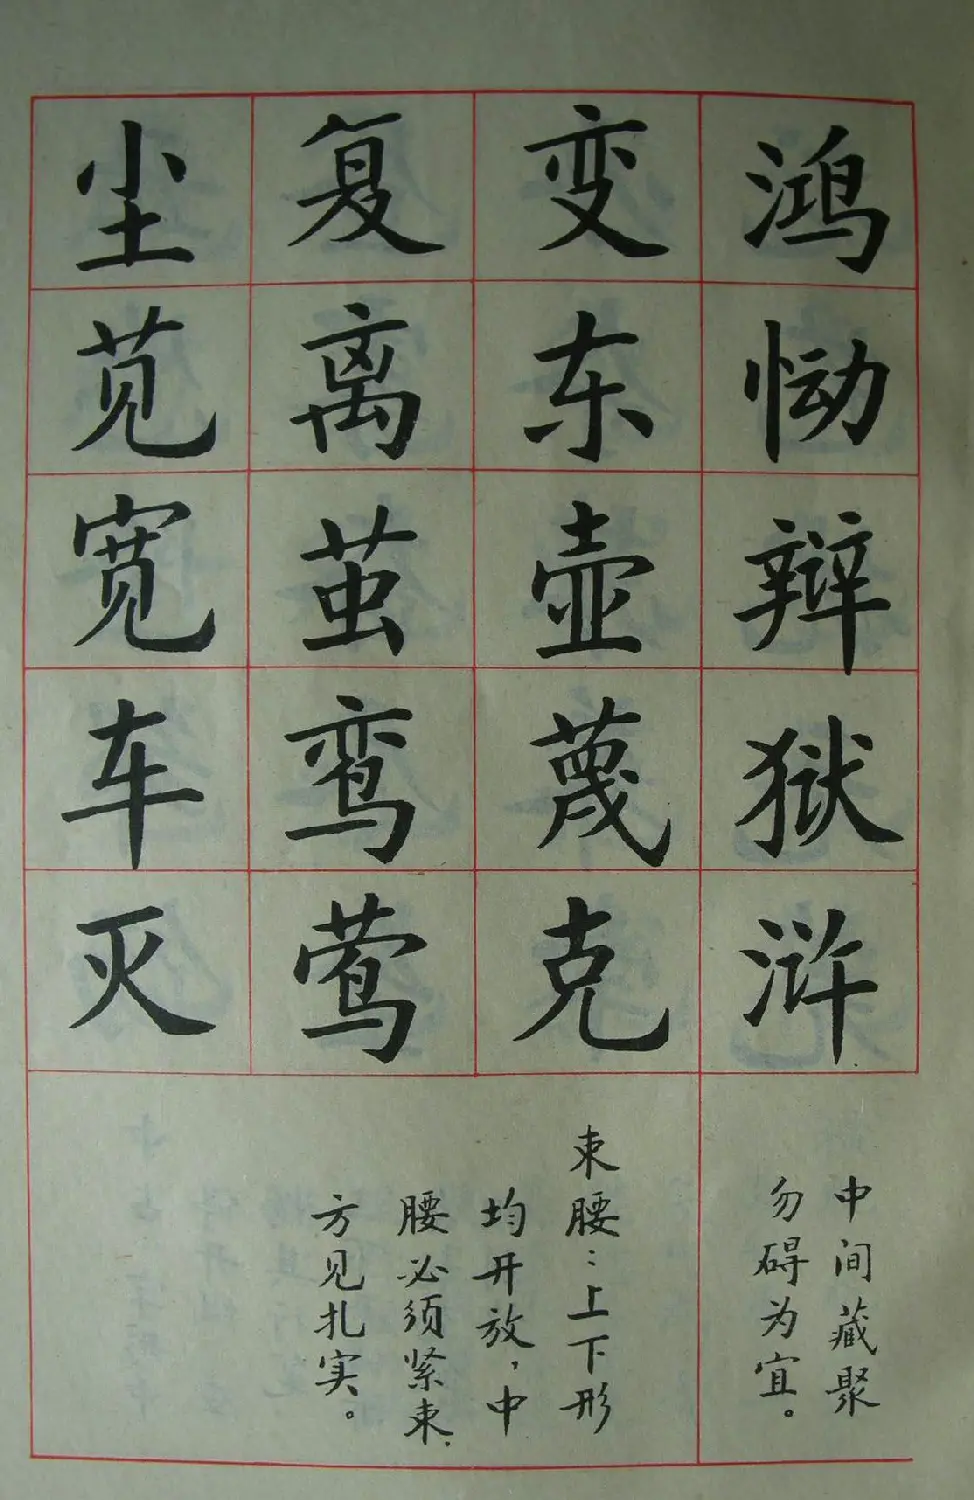 鸿恸辩狱浒
中间藏聚
勿碍为宜。
变东壶蔑克
复离茧鸾莺
尘苋宽车灭
束腰：上下形
均开放，中
腰必须紧束，
方见扎实。